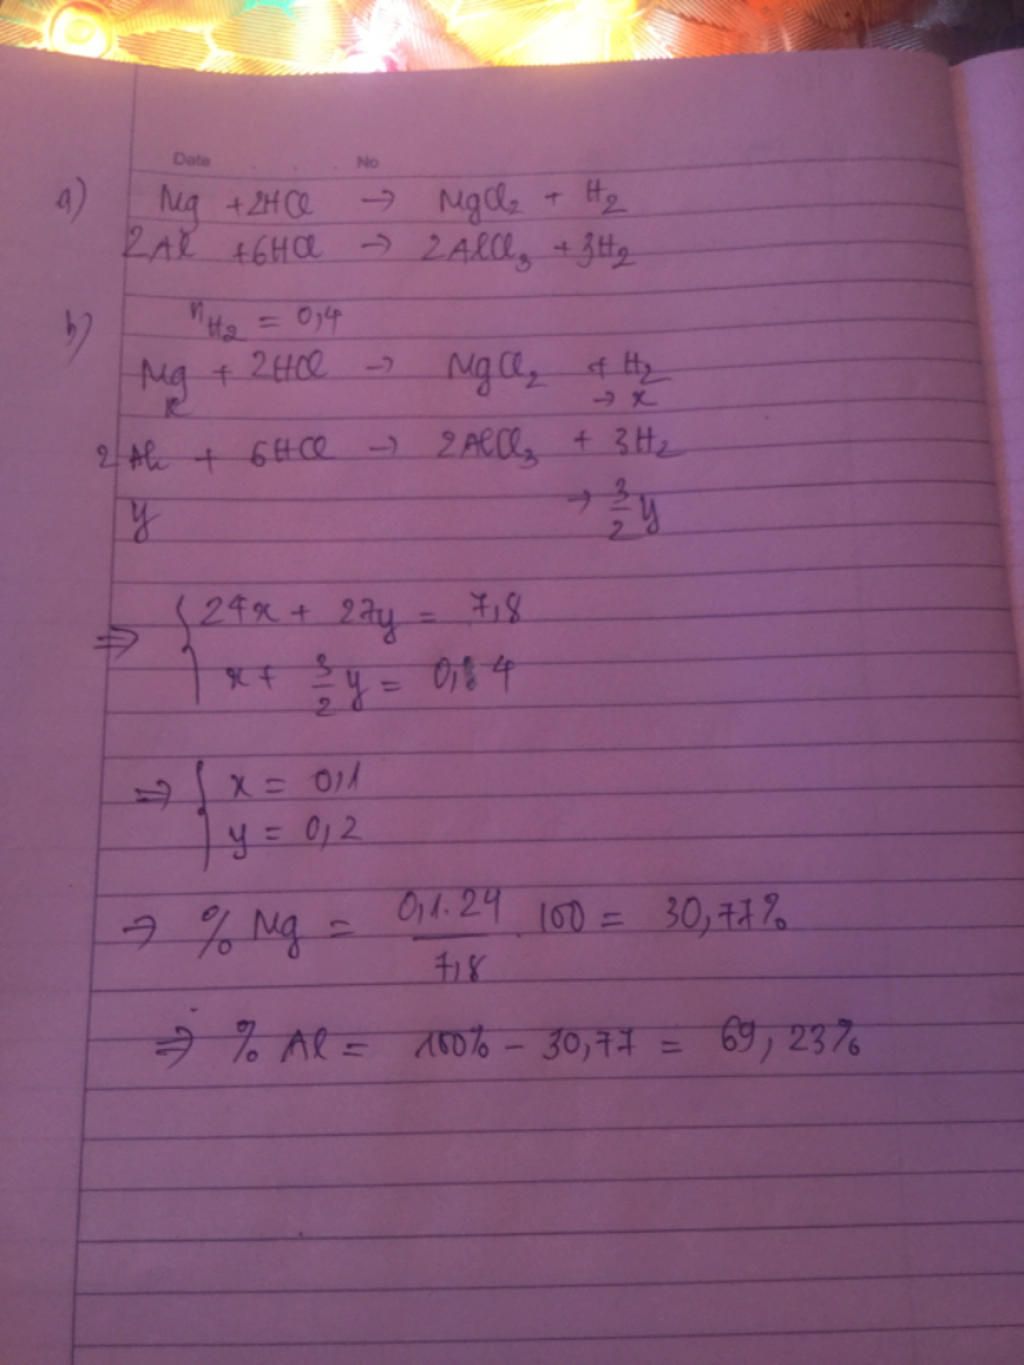 Date No
a) Mg + 2HCl → MgCl₂ + H₂
2Al + 6HCl → 2AlCl₃ + 3H₂
b) nH₂ = 0,4
Mg + 2HCl → MgCl₂ + H₂
x → x
2Al + 6HCl → 2AlCl₃ + 3H₂
y → 3/2 y
⇒ { 24x + 27y = 7,8
x + 3/2 y = 0,4
⇒ { x = 0,1
y = 0,2
→ % Mg = 0,1.24/7,8 . 100 = 30,77%
⇒ % Al = 100% - 30,77 = 69,23%